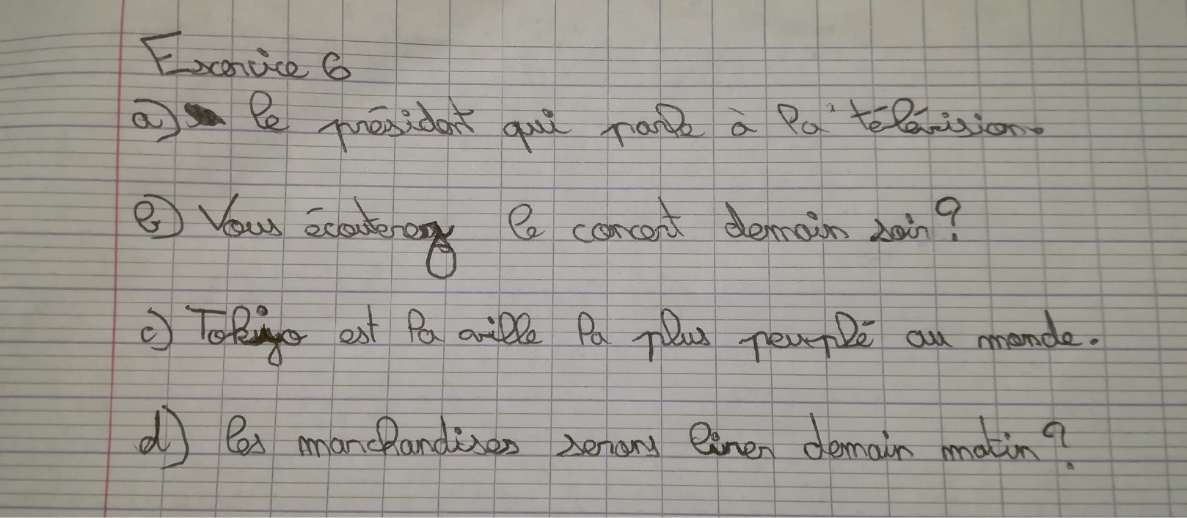 Exercice 6
a) le présidat qui parle à la télévision.
b) Vous écouterez le concert demain soir?
c) Tokiyo est la ville la plus peuplé au monde.
d) les marchandises serons liver demain matin?